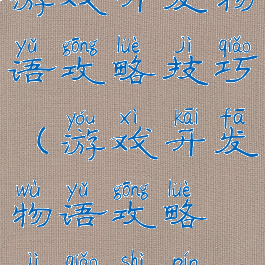 游戏开发物
yǔ gōng lüè jì qiǎo
语攻略技巧
yóu xì kāi fā
(游戏开发
wù yǔ gōng lüè
物语攻略
jì qiǎo shì pín